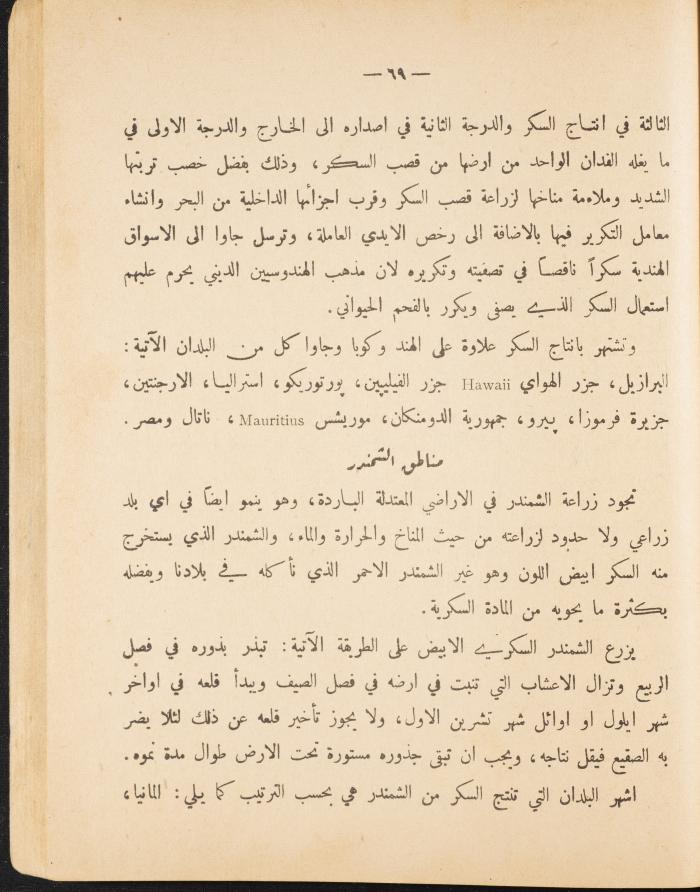 — ٦٩ —
الثالثة في انتاج السكر والدرجة الثانية في اصداره الى الخارج والدرجة الاولى في
ما يغله الفدان الواحد من ارضها من قصب السكر، وذلك بفضل خصب تربتها
الشديد وملاءمة مناخها لزراعة قصب السكر وقرب اجزائها الداخلية من البحر وانشاء
معامل التكرير فيها بالاضافة الى رخص الايدي العاملة، وترسل جاوا الى الاسواق
الهندية سكراً ناقصاً في تصفيته وتكريره لان مذهب الهندوسيين الديني يحرم عليهم
استعمال السكر الذي يصفى ويكرر بالفحم الحيواني.
وتشتهر بانتاج السكر علاوة على الهند وكوبا وجاوا كل من البلدان الآتية:
البرازيل، جزر الهواي Hawaii جزر الفيليپين، پورتوريكو، استراليا، الارجنتين،
جزيرة فرموزا، پيرو، جمهورية الدومنكان، موريشس Mauritius، ناتال ومصر.
مناطق الشمندر
تجود زراعة الشمندر في الاراضي المعتدلة الباردة، وهو ينمو ايضاً في اي بلد
زراعي ولا حدود لزراعته من حيث المناخ والحرارة والماء، والشمندر الذي يستخرج
منه السكر ابيض اللون وهو غير الشمندر الاحمر الذي نأكله في بلادنا ويفضله
بكثرة ما يحويه من المادة السكرية.
يزرع الشمندر السكري الابيض على الطريقة الآتية: تبذر بذوره في فصل
الربيع وتزال الاعشاب التي تنبت في ارضه في فصل الصيف ويبدأ قلعه في اواخر
شهر ايلول او اوائل شهر تشرين الاول، ولا يجوز تأخير قلعه عن ذلك لئلا يضر
به الصقيع فيقل نتاجه، ويجب ان تبقى جذوره مستورة تحت الارض طوال مدة نموه.
اشهر البلدان التي تنتج السكر من الشمندر هي بحسب الترتيب كما يلي: المانيا،